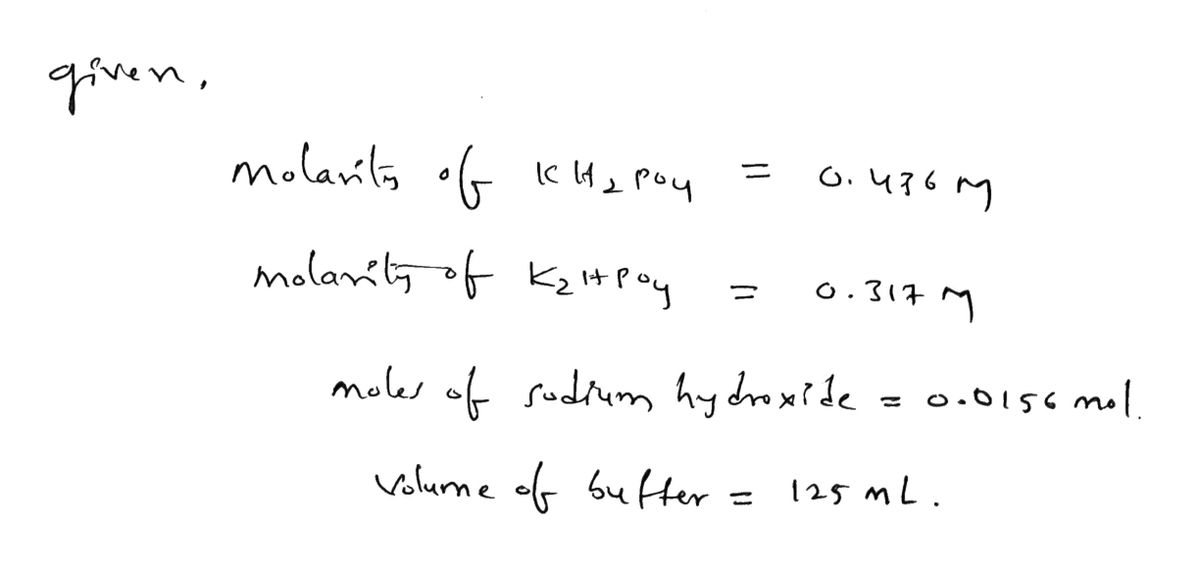 given,
molarity of KH₂PO₄ = 0.436 M
molarity of K₂HPO₄ = 0.317 M
moles of sodium hydroxide = 0.0156 mol.
volume of buffer = 125 mL.